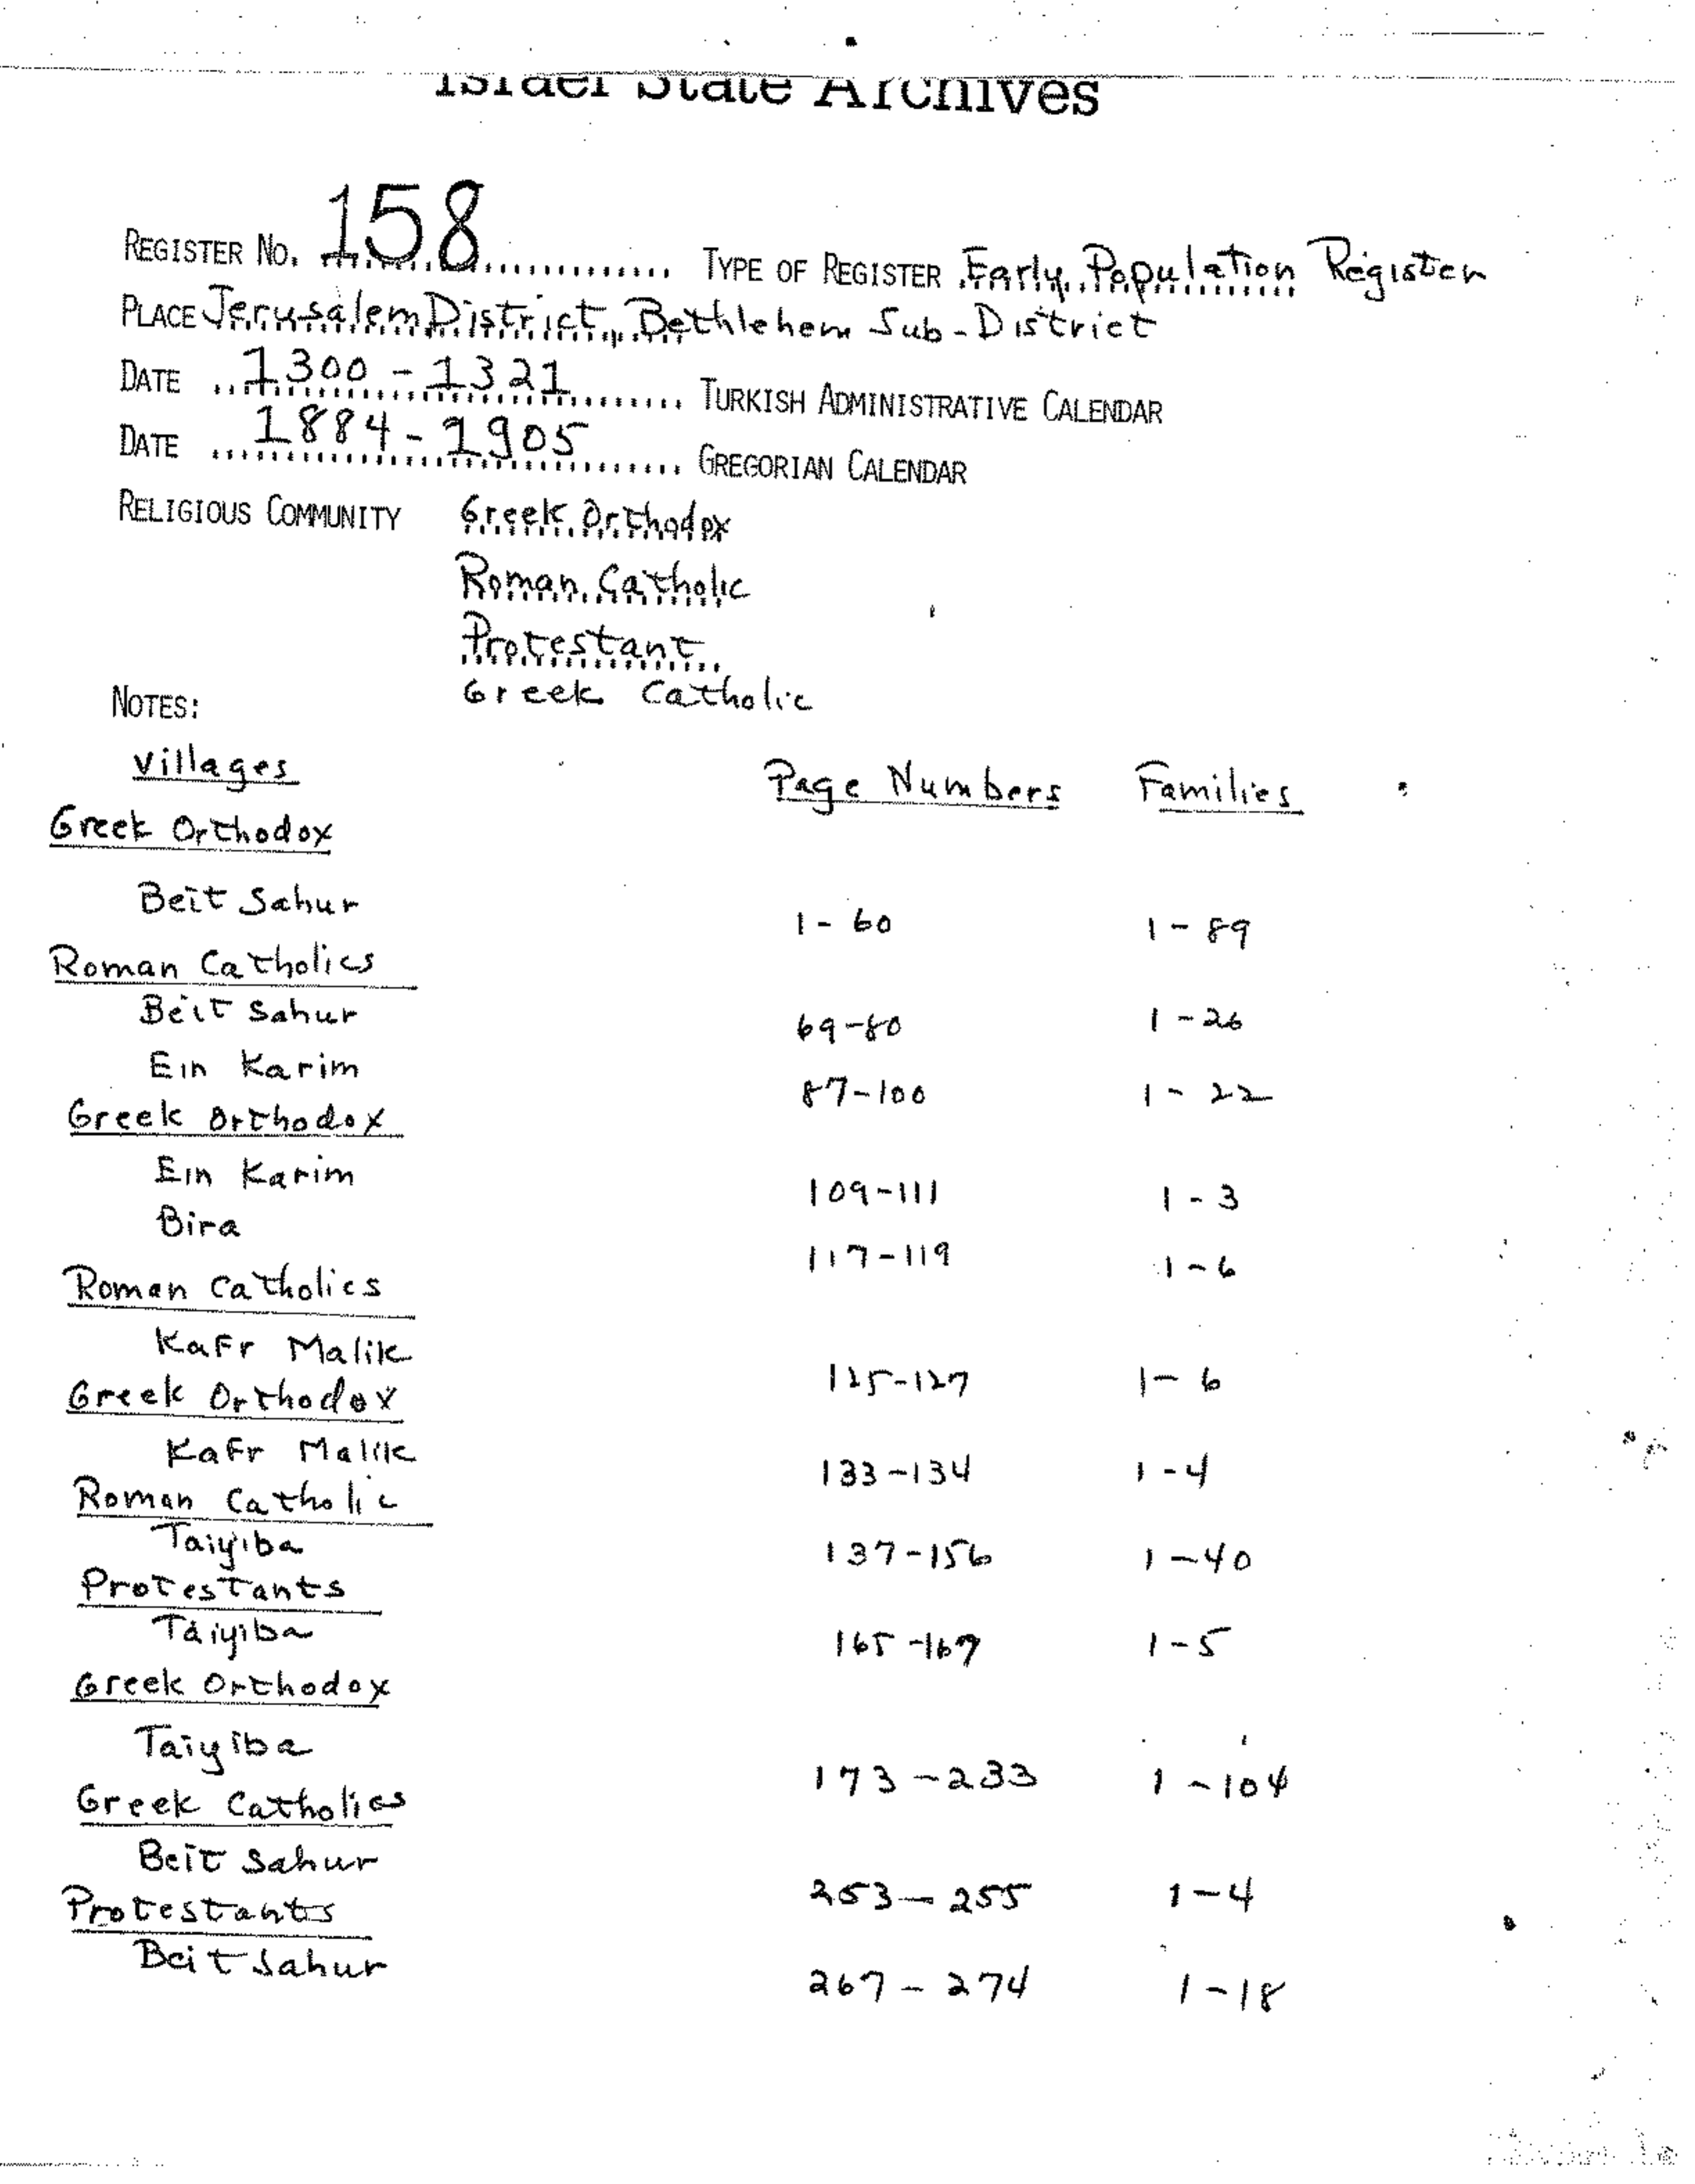 Israel State Archives
REGISTER NO. 158 TYPE OF REGISTER Early Population Register
PLACE Jerusalem District, Bethlehem Sub-District
DATE 1300 - 1321 TURKISH ADMINISTRATIVE CALENDAR
DATE 1884 - 1905 GREGORIAN CALENDAR
RELIGIOUS COMMUNITY Greek Orthodox
Roman Catholic
Protestant
Greek Catholic
NOTES:
Villages Page Numbers Families
Greek Orthodox
Beit Sahur 1 - 60 1 - 89
Roman Catholics
Beit Sahur 69-80 1 - 26
Ein Karim 87-100 1 - 22
Greek Orthodox
Ein Karim 109-111 1 - 3
Bira 117-119 1-6
Roman Catholics
Kafr Malik 125-127 1- 6
Greek Orthodox
Kafr Malik 133-134 1-4
Roman Catholic
Taiyiba 137-156 1-40
Protestants
Taiyiba 165-167 1-5
Greek Orthodox
Taiyiba 173-233 1-104
Greek Catholics
Beit Sahur 253-255 1-4
Protestants
Beit Sahur 267-274 1-18